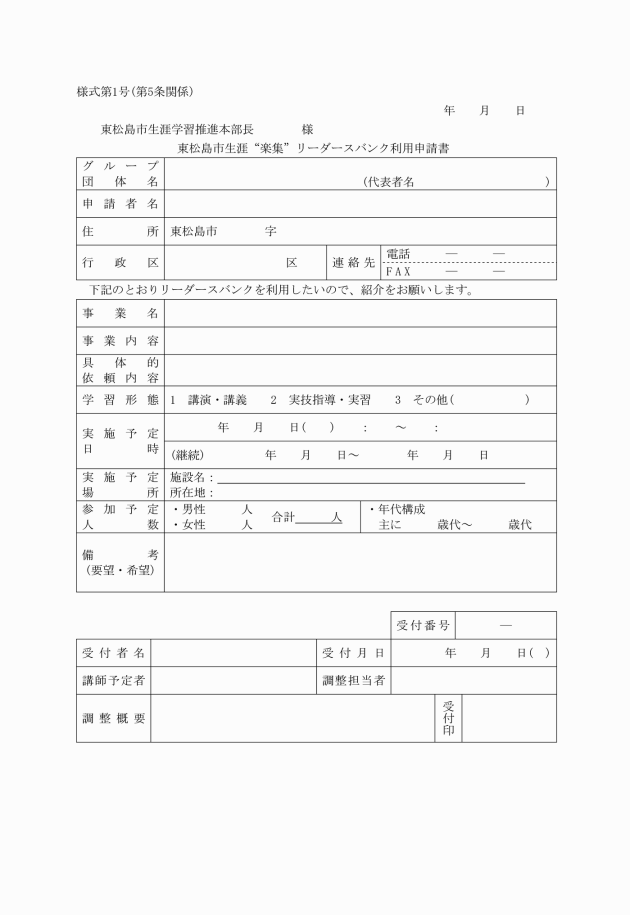 様式第1号(第5条関係)
年　　月　　日
東松島市生涯学習推進本部長　　　　様
東松島市生涯“楽集”リーダースバンク利用申請書
グループ
団体名
(代表者名　　　　　　　　　　　)
申請者名
住所
東松島市　　　　字
行政区
区
連絡先
電話　　　―　　　―
FAX　　　―　　　―
下記のとおりリーダースバンクを利用したいので、紹介をお願いします。
事業名
事業内容
具体的
依頼内容
学習形態
1　講演・講義　　2　実技指導・実習　　3　その他(　　　　　　)
実施予定
日時
年　　月　　日(　　)　　：　　～　　：
(継続)　　　　　年　　月　　日～　　　　年　　月　　日
実施予定
場所
施設名：
所在地：
参加予定
人数
・男性　　　人
・女性　　　人
合計　　　人
・年代構成
主に　　　歳代～　　　歳代
備考
(要望・希望)
受付番号
―
受付者名
受付月日
年　　月　　日(　)
講師予定者
調整担当者
調整概要
受付印